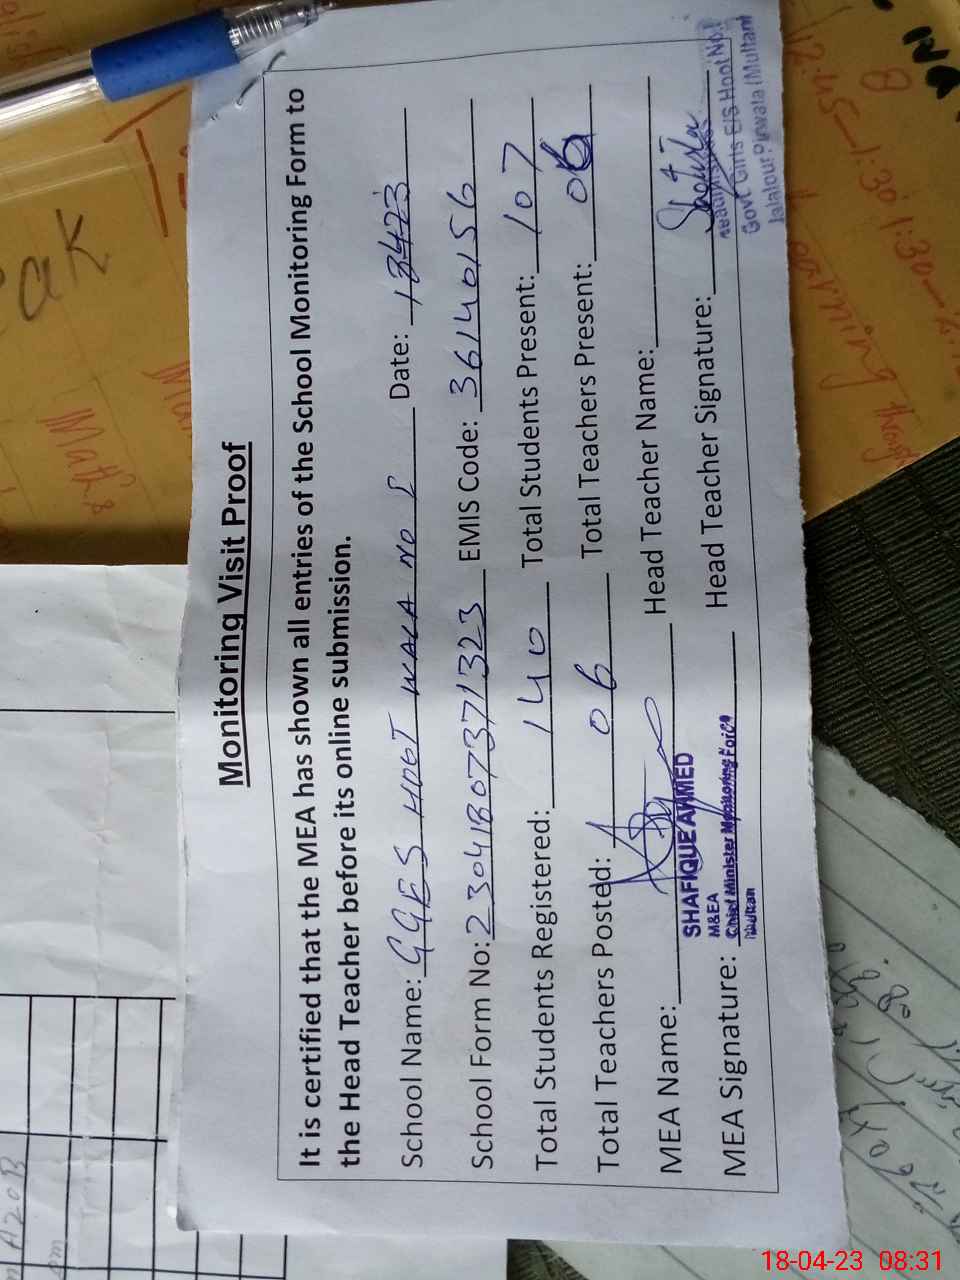 Monitoring Visit Proof
It is certified that the MEA has shown all entries of the School Monitoring Form to
the Head Teacher before its online submission.
School Name: GGES HOOT WALA NO 1 Date: 18423
School Form No: 23041807371323 EMIS Code: 36140156
Total Students Registered: 140 Total Students Present: 107
Total Teachers Posted: 06 Total Teachers Present: 06
MEA Name: Head Teacher Name:
SHAFIQUE AHMED
M&EA
Chief Minister Monitoring Force
Multan
MEA Signature: Head Teacher Signature:
Govt Girls E/S Hoot No.1
Jalalpur Pirwala (Multan)
eak
Maths
8
18-04-23 08:31